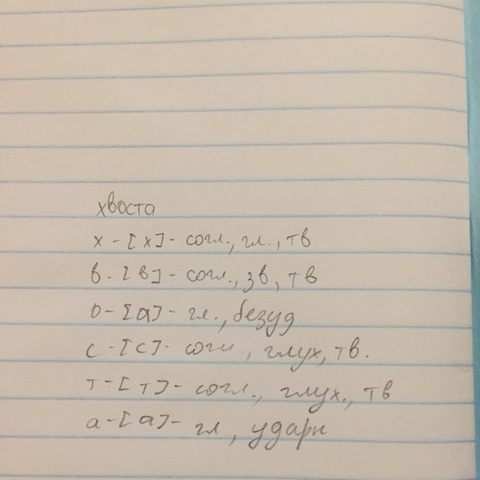 хвоста
х - [х] - согл., гл., тв
в - [в] - согл., зв, тв
о - [а] - гл., безуд
с - [с] - согл, глух, тв.
т - [т] - согл., глух., тв
а - [а] - гл, ударн